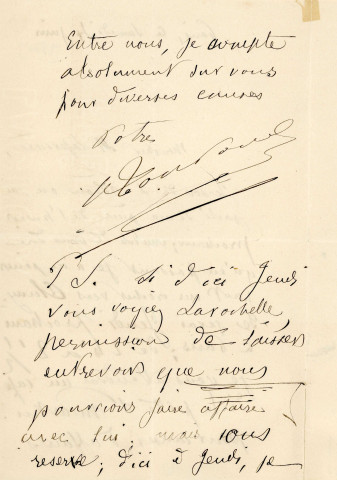 Entre nous, je compte
absolument sur vous
pour diverses causes
Votre
P.S. si d'ici Jeudi
vous voyez Larochelle,
permission de laisser
entrevoir que nous
pourrions faire affaire
avec lui, mais sous
reserve; d'ici à Jeudi, je